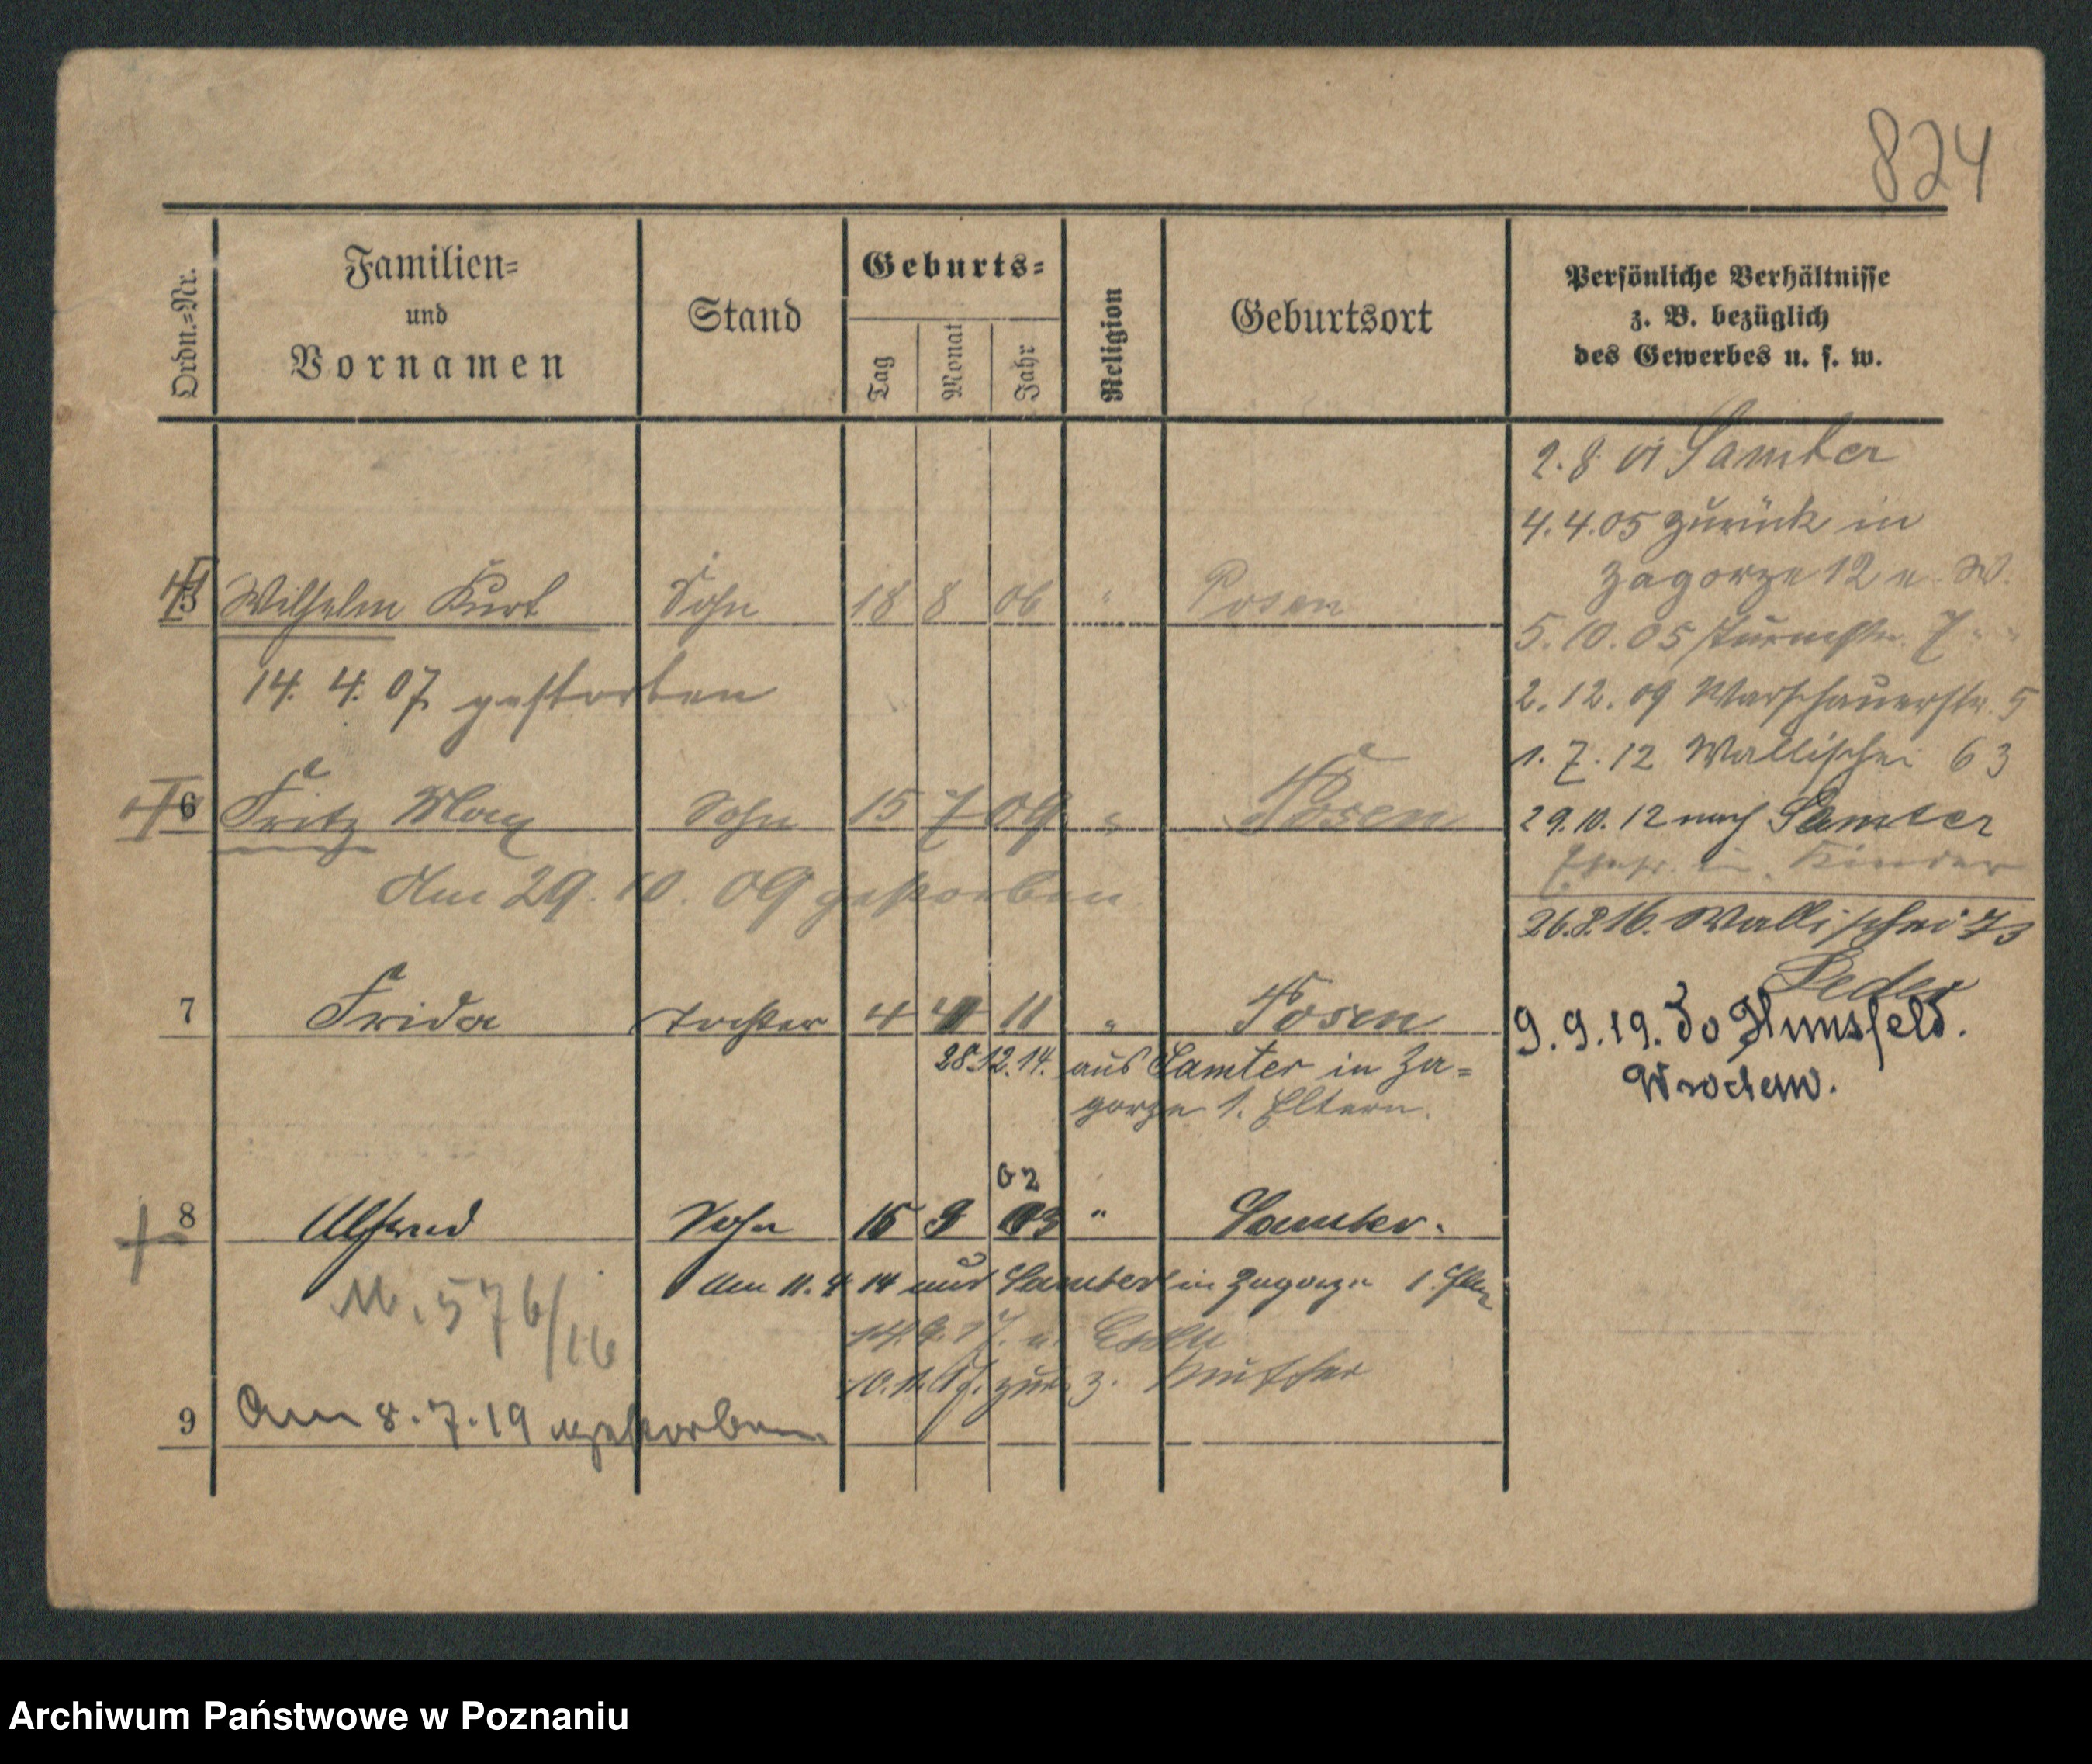 824
Ordn.=Nr.
Familien=
und
Vornamen
Stand
Geburts=
Tag
Monat
Jahr
Religion
Geburtsort
Persönliche Verhältnisse
z. B. bezüglich
des Gewerbes u. s. w.
2. 8. 01 Samter
4. 4. 05 zurück in
Zagorze 12 e. W.
5 Wilhelm Kurt Sohn 18 8 06 " Posen
5. 10. 05 7 " "
14. 4. 07 gestorben
2. 12. 09 Warschauerstr. 5
1. 7. 12 Wallischei 63
6 Fritz Max Sohn 15 7 09 " Posen
29. 10. 12 nach Samter
Kinder
Am 29. 10. 09 gestorben
26. 8. 16. Wallischei 73
7 Frida Tochter 4 11 " Posen
9. 9. 19. do Hunsfeld.
28.12.14. aus Samter in Za=
gorze 1. Eltern.
Wrocław.
02
8 Alfred Sohn 15 9 03 " Samter.
Am 11. 4 14 aus Samter in Zagorze 1.
M. 576/16
14. 9. 17. n.
10. 11. 17. zur. z. Mutter
9 Am 8. 7. 19 gestorben
Archiwum Państwowe w Poznaniu